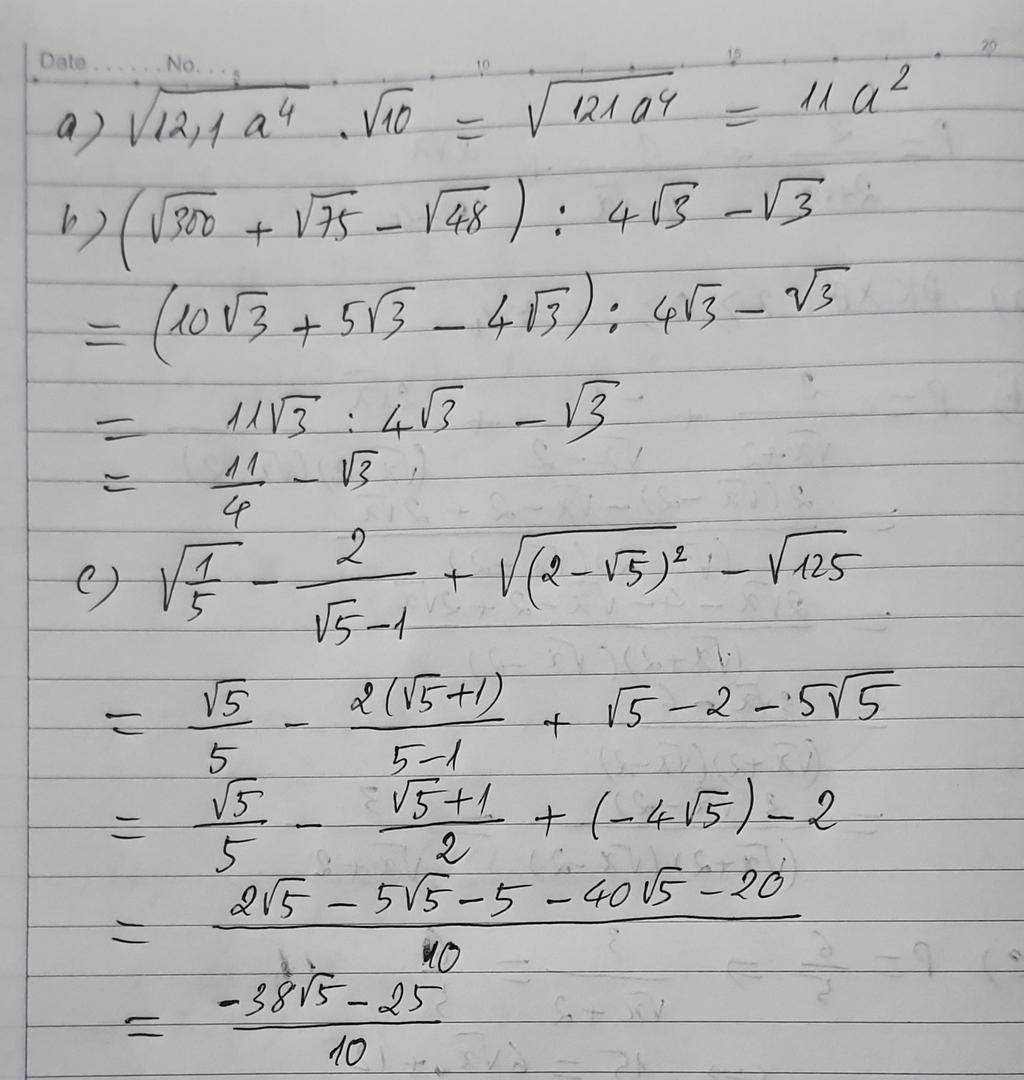 Date ...... No. ... 5 10 15 20
a) √(12,1a⁴) . √10 = √(121a⁴) = 11a²
b) (√300 + √75 − √48) : 4√3 − √3
= (10√3 + 5√3 − 4√3) : 4√3 − √3
= 11√3 : 4√3 − √3
= 11/4 − √3
c) √(1/5) − 2/(√5−1) + √((2−√5)²) − √125
= √5/5 − 2(√5+1)/(5−1) + √5 − 2 − 5√5
= √5/5 − (√5+1)/2 + (−4√5) − 2
= (2√5 − 5√5 − 5 − 40√5 − 20)/10
= (−38√5 − 25)/10